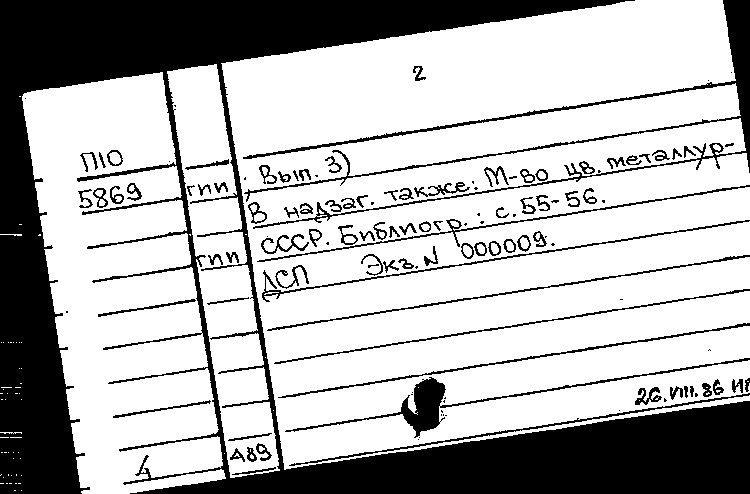 2
П10
5869
гпи ; Вып. 3)
В надзаг. также: М-во цв. металлур-
гпи СССР. Библиогр.: с. 55-56.
ДСП Экз. N 000009.
26.VIII.86
4 489